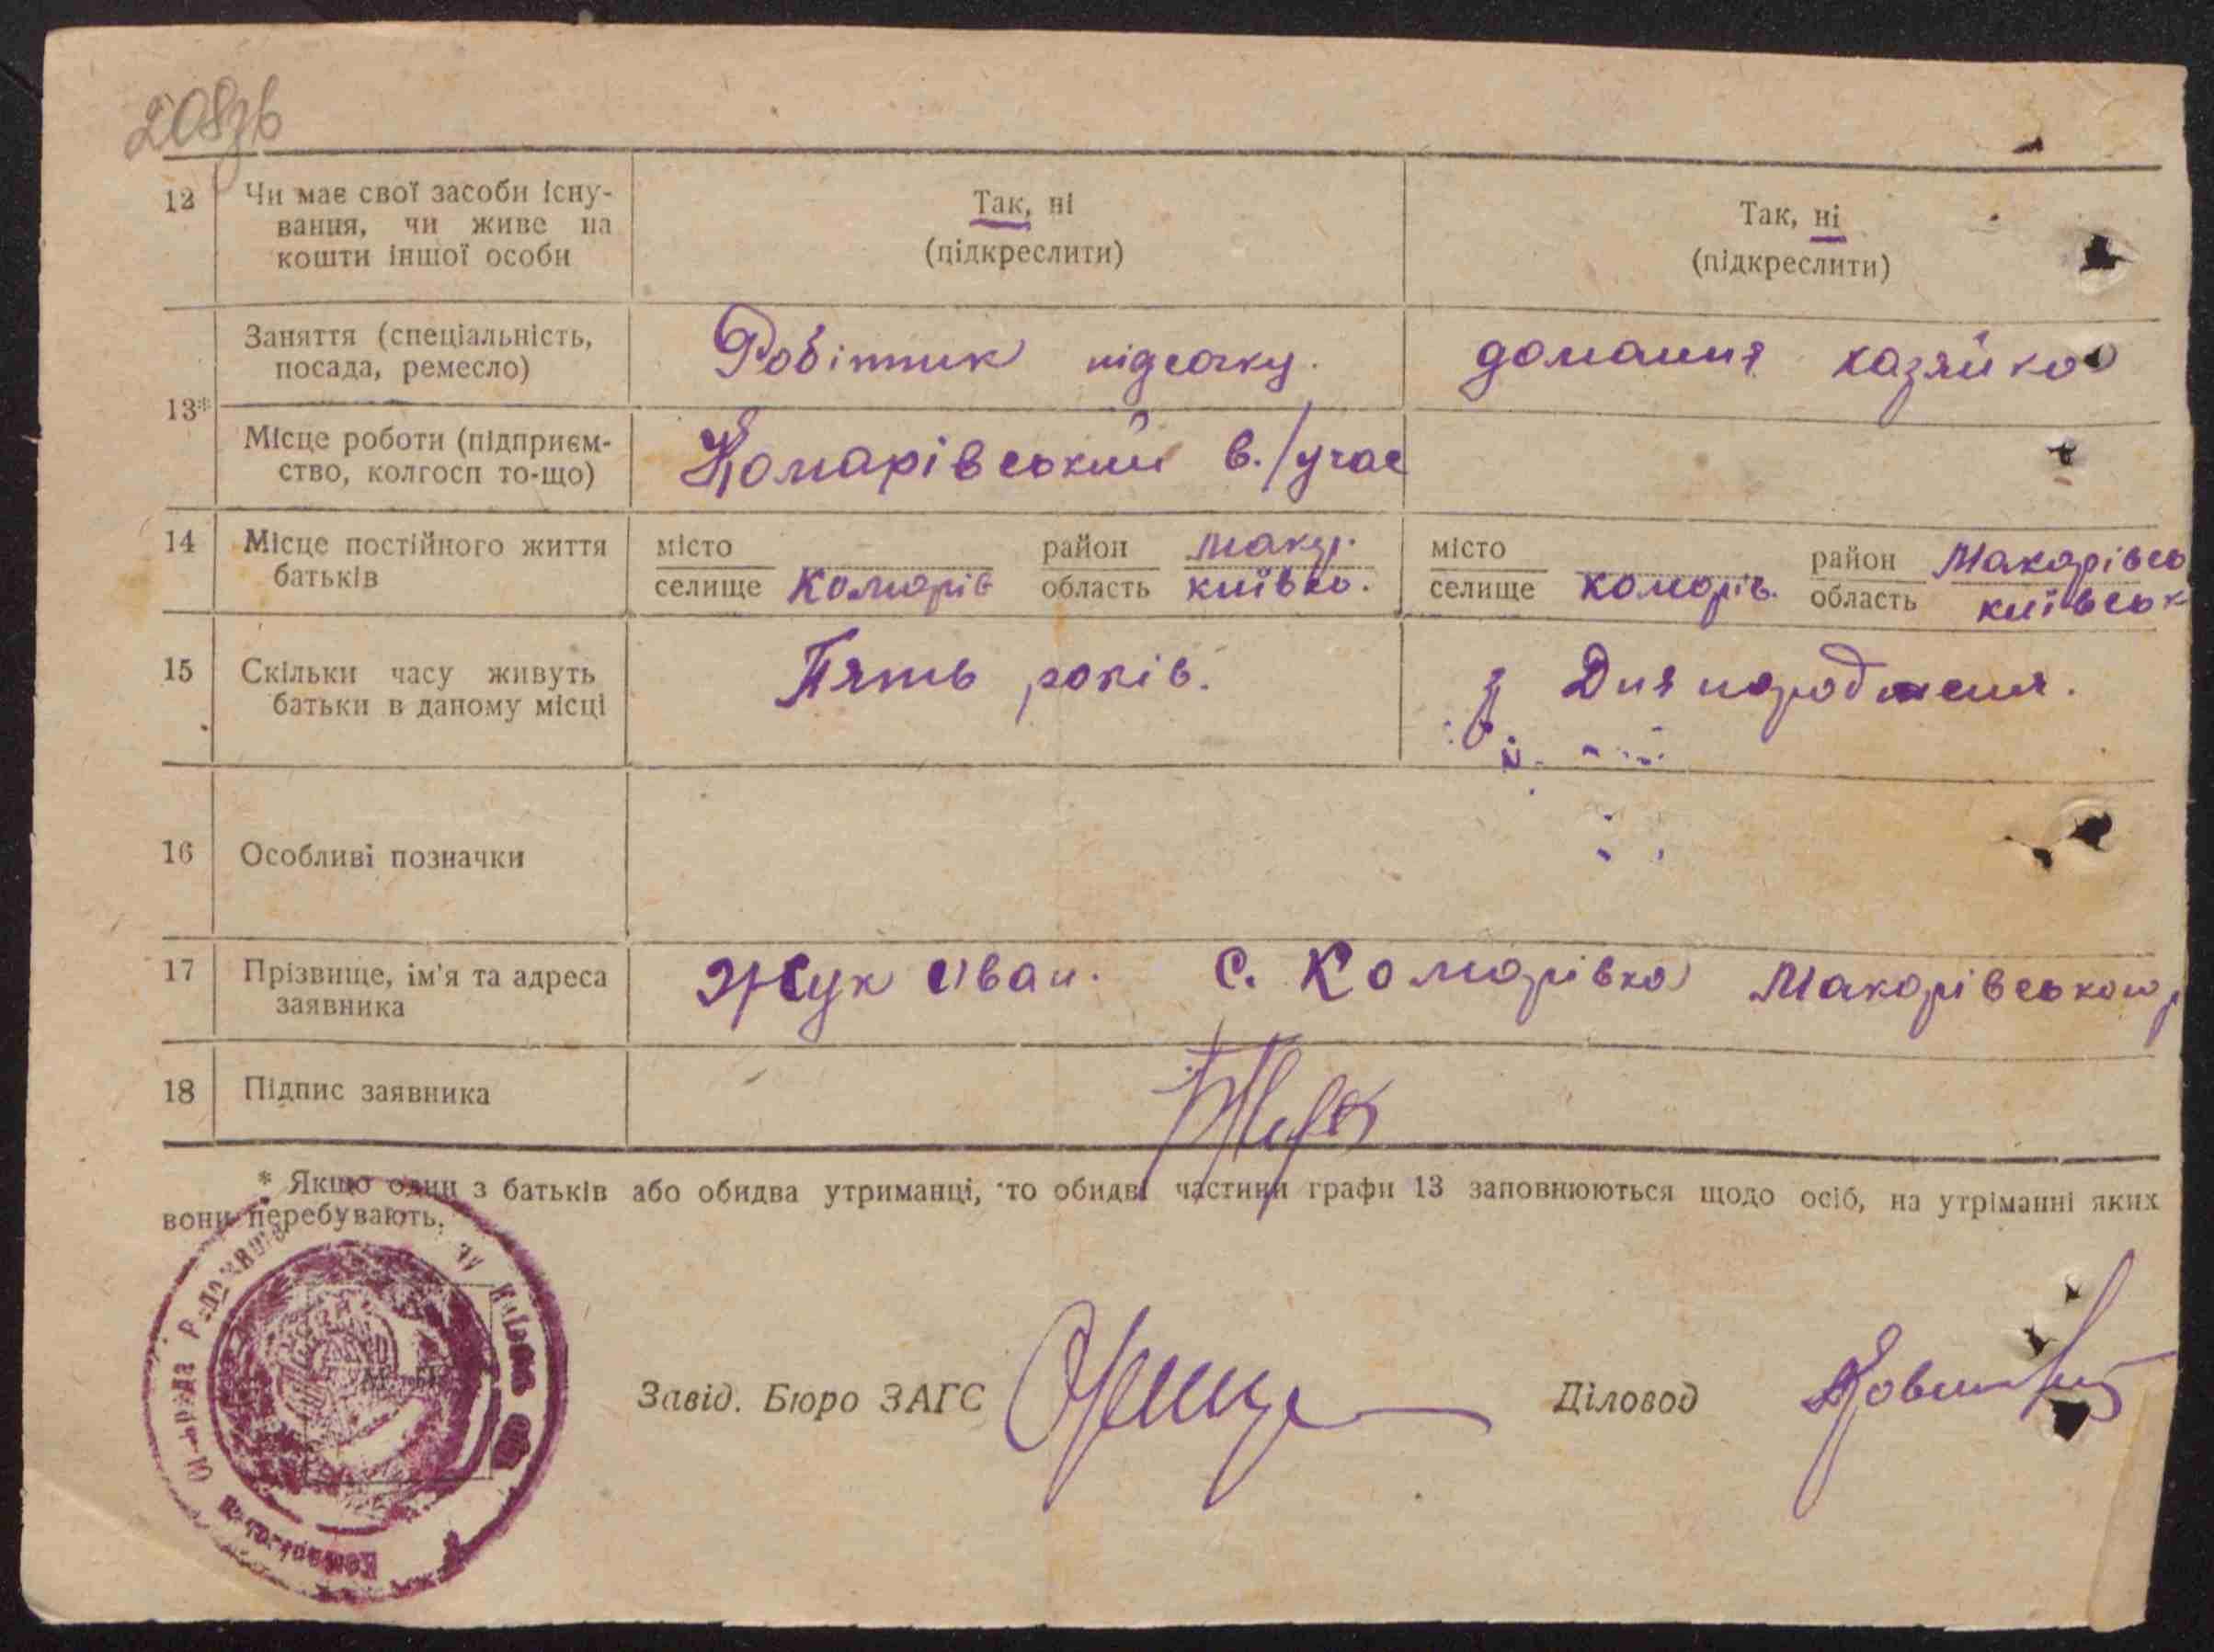 208зв
12 Чи має свої засоби існу-
вання, чи живе на
кошти іншої особи
Так, ні
(підкреслити)
Так, ні
(підкреслити)
13*
Заняття (спеціальність,
посада, ремесло)
Робітник підсочку.
домашня хазяйка
Місце роботи (підприєм-
ство, колгосп то-що)
Комарівський в./учас
14 Місце постійного життя
батьків
місто
селище Комарів
район Макар.
область київсь.
місто
селище Комарів.
район Макарівсь
область київськ
15 Скільки часу живуть
батьки в даному місці
Пять років.
З Дня народження.
16 Особливі позначки
17 Прізвище, ім'я та адреса
заявника
Жук Іван. с. Комарівка Макарівського р
18 Підпис заявника
* Якщо один з батьків або обидва утриманці, то обидві частини графи 13 заповнюються щодо осіб, на утріманні яких
вони перебувають.
Завід. Бюро ЗАГС
Діловод